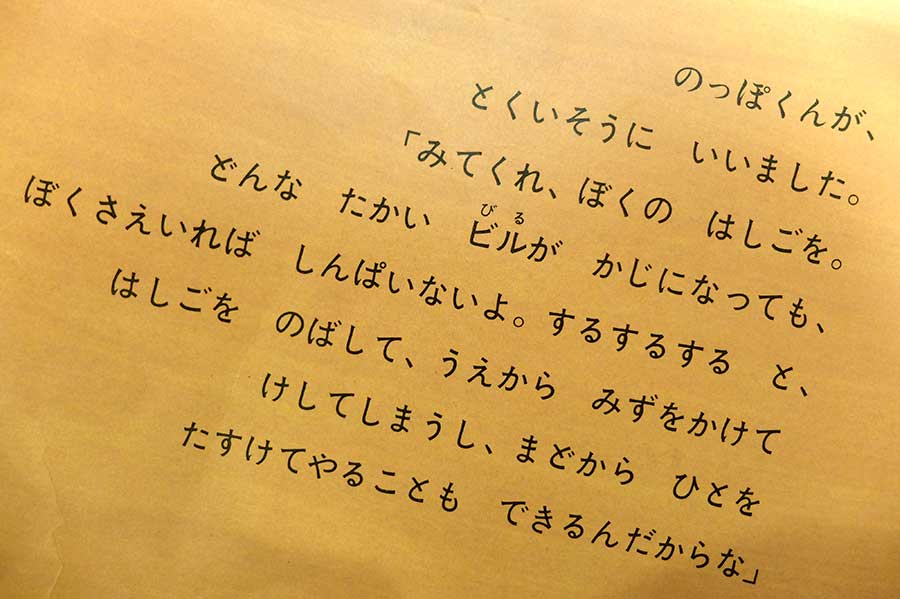 のっぽくんが、
とくいそうに　いいました。
「みてくれ、ぼくの　はしごを。
びる
どんな　たかい　ビルが　かじになっても、
ぼくさえいれば　しんぱいないよ。するするする　と、
はしごを　のばして、うえから　みずをかけて
けしてしまうし、まどから　ひとを
たすけてやることも　できるんだからな」